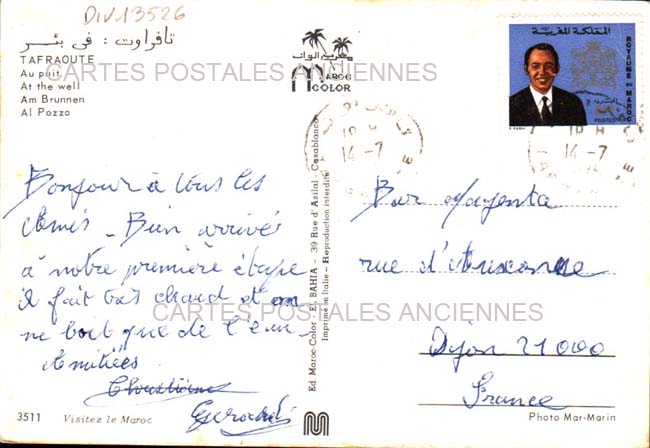 DIV13526
تافراوت : في بئر
TAFRAOUTE
Au puit
At the well
Am Brunnen
Al Pozzo
CARTES POSTALES ANCIENNES
MAROC
COLOR
المملكة المغربية
ROYAUME DU MAROC
POSTES
14-7
14-7
Bonjour à tous les
Amis - Bien arrivés
à notre première étape
il fait très chaud et on
ne boit que de l'eau
Amitiées
Ed. Maroc-Color - EL BAHIA - 39 Rue d'Azilal - Casablanca
Imprimé en Italie - Reproduction interdite
Bar Magenta
rue d'Auxonne
Dijon 21000
France
CARTES POSTALES ANCIENNES
3511 Visitez le Maroc
Photo Mar-Marin